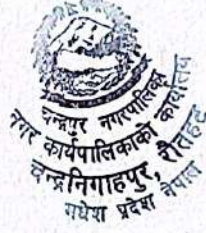 चन्द्रपुर नगरपालिका
नगर कार्यपालिकाको कार्यालय
चन्द्रनिगाहपुर, रौतहट
मधेश प्रदेश नेपाल